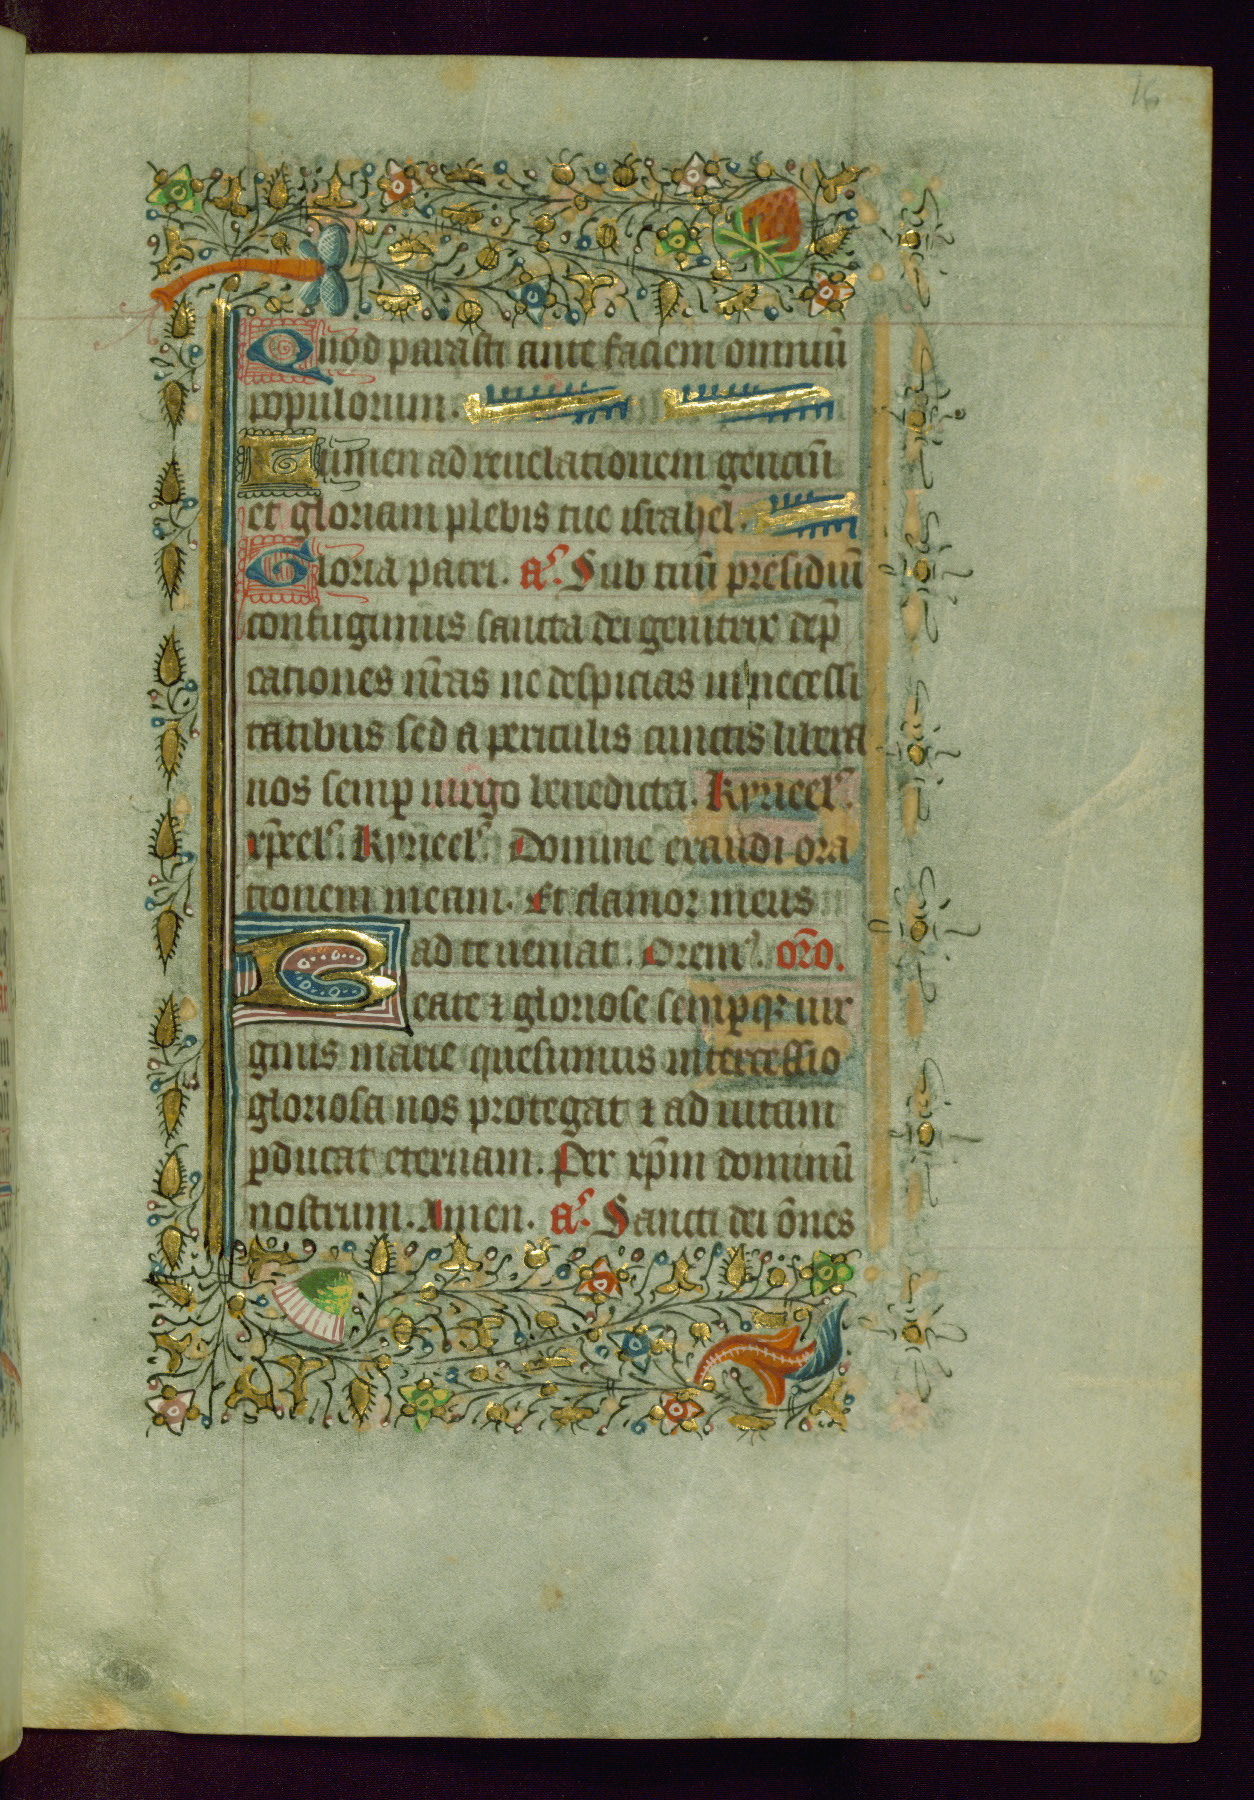 16
Quod parasti ante faciem omniũ
populorum.
Lumen ad reuelationem gentiũ
et gloriam plebis tue israhel.
Gloria patri. aᷤ. Sub tuũ presidiũ
confugimus sancta dei genitrix dep̃
cationes nr̃as ne despicias in necessi
tatibus sed a periculis cunctis libera
nos semꝑ uirgo benedicta. Kyrieelˢ.
xp̃eelˢ. Kyrieelˢ. Domine exaudi ora
tionem meam. Et clamor meus
ad te ueniat. Oremꝰ. orõ.
Beate ⁊ gloriose semꝑqꝫ uir
ginis marie quesumus intercessio
gloriosa nos protegat ⁊ ad uitam
ꝑducat eternam. Per xp̃m dominũ
nostrum. Amen. aᷤ. Sancti dei õnes